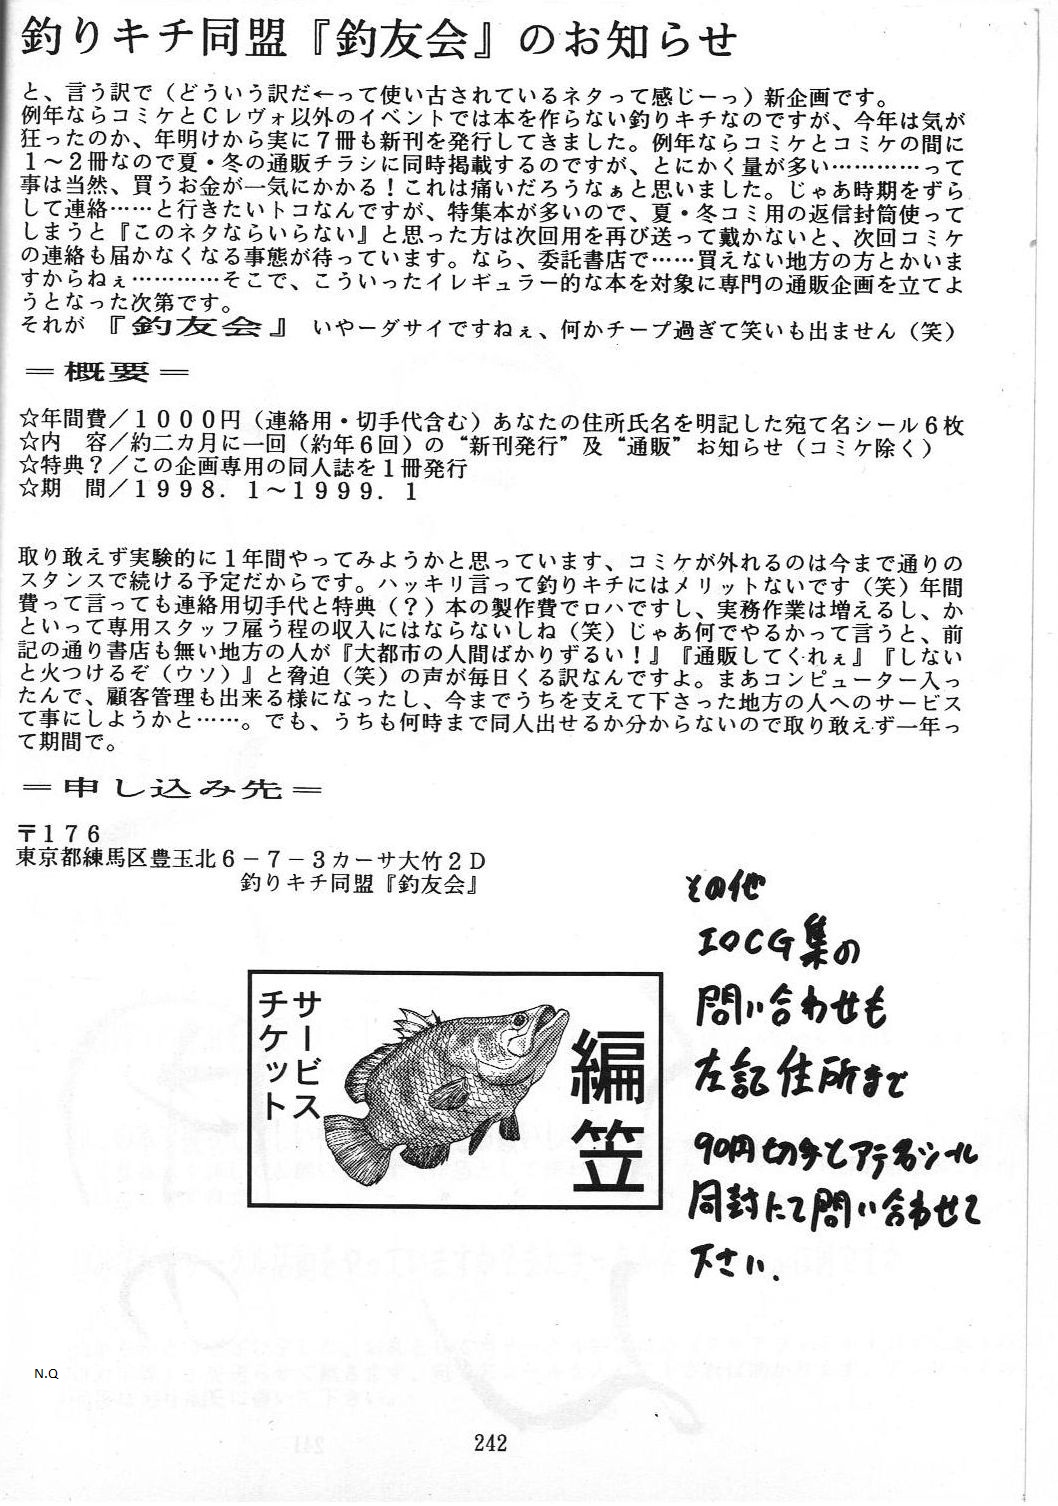 釣りキチ同盟『釣友会』のお知らせ
と、言う訳で（どういう訳だ←って使い古されているネタって感じーっ）新企画です。
例年ならコミケとＣレヴォ以外のイベントでは本を作らない釣りキチなのですが、今年は気が
狂ったのか、年明けから実に７冊も新刊を発行してきました。例年ならコミケとコミケの間に
１～２冊なので夏・冬の通販チラシに同時掲載するのですが、とにかく量が多い…………って
事は当然、買うお金が一気にかかる！これは痛いだろうなぁと思いました。じゃあ時期をずら
して連絡……と行きたいトコなんですが、特集本が多いので、夏・冬コミ用の返信封筒使って
しまうと『このネタならいらない』と思った方は次回用を再び送って戴かないと、次回コミケ
の連絡も届かなくなる事態が待っています。なら、委託書店で……買えない地方の方とかいま
すからねぇ…………そこで、こういったイレギュラー的な本を対象に専門の通販企画を立てよ
うとなった次第です。
それが『釣友会』いやーダサイですねぇ、何かチープ過ぎて笑いも出ません（笑）
＝概要＝
☆年間費／１０００円（連絡用・切手代含む）あなたの住所氏名を明記した宛て名シール６枚
☆内　容／約二カ月に一回（約年６回）の“新刊発行”及“通販”お知らせ（コミケ除く）
☆特典？／この企画専用の同人誌を１冊発行
☆期　間／１９９８．１～１９９９．１
取り敢えず実験的に１年間やってみようかと思っています、コミケが外れるのは今まで通りの
スタンスで続ける予定だからです。ハッキリ言って釣りキチにはメリットないです（笑）年間
費って言っても連絡用切手代と特典（？）本の製作費でロハですし、実務作業は増えるし、か
といって専用スタッフ雇う程の収入にはならないしね（笑）じゃあ何でやるかって言うと、前
記の通り書店も無い地方の人が『大都市の人間ばかりずるい！』『通販してくれぇ』『しない
と火つけるぞ（ウソ）』と脅迫（笑）の声が毎日くる訳なんですよ。まあコンピューター入っ
たんで、顧客管理も出来る様になったし、今までうちを支えて下さった地方の人へのサービス
て事にしようかと……。でも、うちも何時まで同人出せるか分からないので取り敢えず一年っ
て期間で。
＝申し込み先＝
〒１７６
東京都練馬区豊玉北６－７－３カーサ大竹２Ｄ
釣りキチ同盟『釣友会』
その他
IOCG集の
問い合わせも
左記住所まで
90円切手とアテ名シール
同封にて問い合わせて
下さい.
編笠
サービス
チケット
N.Q
242